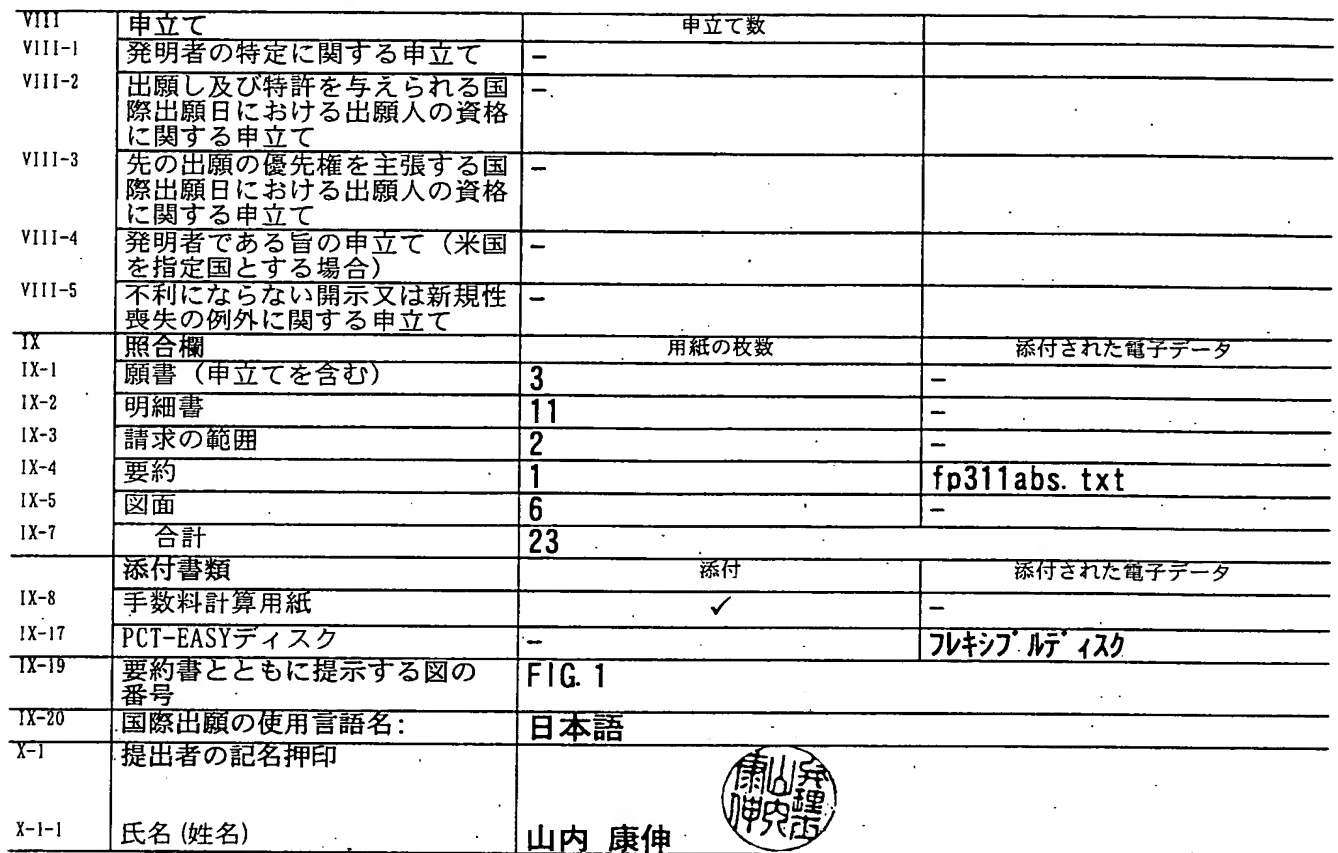 VIII 申立て 申立て数
VIII-1 発明者の特定に関する申立て -
VIII-2 出願し及び特許を与えられる国 -
際出願日における出願人の資格
に関する申立て
VIII-3 先の出願の優先権を主張する国 -
際出願日における出願人の資格
に関する申立て
VIII-4 発明者である旨の申立て（米国 -
を指定国とする場合）
VIII-5 不利にならない開示又は新規性 -
喪失の例外に関する申立て
IX 照合欄 用紙の枚数 添付された電子データ
IX-1 願書（申立てを含む） 3 -
IX-2 明細書 11 -
IX-3 請求の範囲 2 -
IX-4 要約 1 fp311abs.txt
IX-5 図面 6 -
IX-7 合計 23
添付書類 添付 添付された電子データ
IX-8 手数料計算用紙 ✓ -
IX-17 PCT-EASYディスク - フレキシブルディスク
IX-19 要約書とともに提示する図の FIG. 1
番号
IX-20 国際出願の使用言語名: 日本語
X-1 提出者の記名押印
弁理士
山内
康伸
X-1-1 氏名(姓名) 山内 康伸